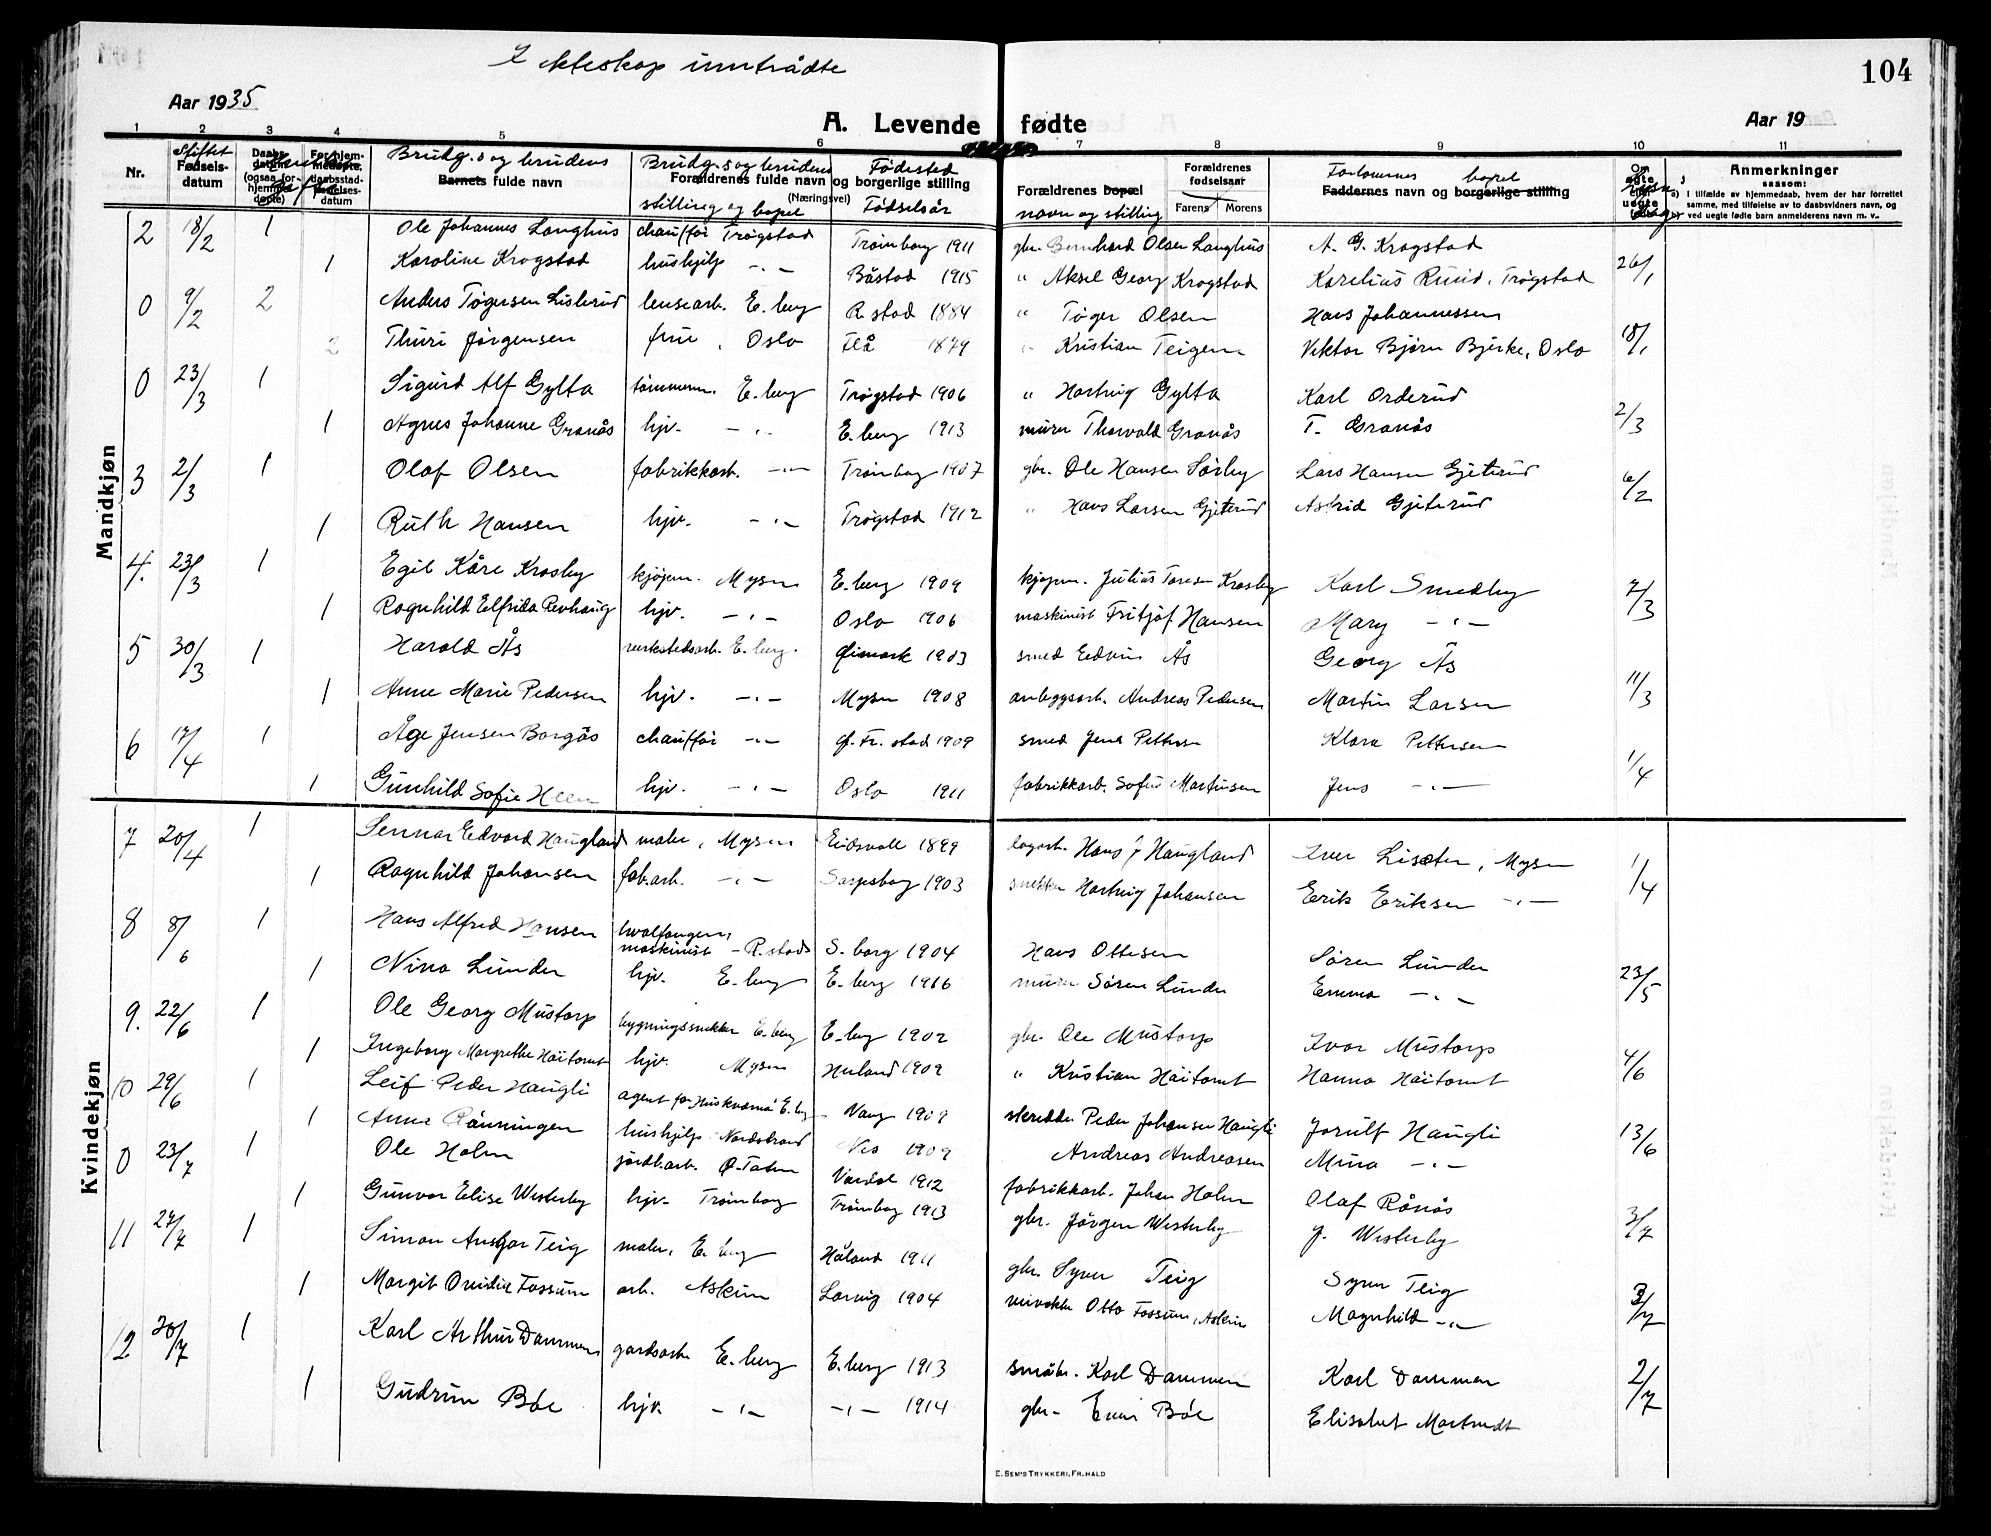 I ekteskap inntrådte
104
Aar 1935
A. Levende fødte
Aar 19
1 2 3 4 5 6 7 8 9 10 11
Nr.
Stiftet Fødsels-datum
Daabs-datum (ogsaa for hjemmedøpte)
For hjem-medøpte, daabsstad-festelses-datum
Brudg.s og brudens Barnets fulde navn
Brudg.s og brudens Forældrenes fulde navn og borgerlige stilling (Næringsvei) stilling og bopel
Fødested Fødselsår
Forældrenes bopæl navn og stilling
Forældrenes fødselsaar
Farens Morens
Forlovernes bopel Faddernes navn og borgerlige stilling
Anmerkninger
saasom:
I tilfælde av hjemmedaab, hvem der har forrettet samme, med tilføielse av to daabsvidners navn, og ved uegte fødte barn anmelderens navn m. v.
Mandkjøn
2 18/2 1 Ole Johannes Langhus chauffør Trøgstad Trømborg 1911 gbr. Bernhard Olsen Langhus A. G. Krogstad
1 Karoline Krogstad hushjelp -"- Båstad 1915 " Aksel Georg Krogstad Karelius Ruud, Trøgstad 26/1
0 9/2 2 Anders Tøgersen Lislerud lensearb. E.berg R.stad 1884 " Tøger Olsen Hans Johannessen
2 Thuri Jørgensen frue, Oslo Flå 1879 " Kristian Teigen Viktor Bjørn Bjerke, Oslo 18/1
0 23/3 1 Sigurd Alf Gylta tømmerm. E.berg Trøgstad 1906 " Hartvig Gylta Karl Orderud
1 Agnes Johanne Granås hjv. -"- E.berg 1913 murer Thorvald Granås T. Granås 2/3
3 2/3 1 Olaf Olsen fabrikkarb. -"- Trømborg 1907 gbr. Ole Hansen Sørby Lars Hansen Gjeterud
1 Ruth Hansen hjv. -"- Trøgstad 1912 " Hans Larsen Gjeterud Astrid Gjeterud 6/2
4. 23/3 1 Egil Kåre Krosby kjøpm. Mysen E.berg 1909 kjøpm. Julius Krosby Karl Smedby
1 Ragnhild Elfrida Revhaug hjv. -"- Oslo 1906 maskinist Fritjof Hansen Mary -"- 7/3
5 30/3 1 Harald Ås verkstedsarb. E.berg. 1903 smed Edvin Ås Georg Ås
1 Anne Marie Pedersen hjv. -"- Mysen 1908 anleggsarb. Andreas Pedersen Martin Larsen 11/3
6 17/4 1 Åge Jensen Borgås chauffør -"- Fr.stad 1909 smed Jens Pettersen Klara Pettersen
1 Gunhild Sofie Heen hjv. -"- Oslo 1911 fabrikkarb. Sofus Martinsen Jens -"- 1/4
Kvindekjøn
7 20/4 1 Sennar Edvard Haugland maler, Mysen Eidsvoll 1899 Hans J Haugland Iver Lisæter, Mysen
1 Ragnhild Johansen fab.arb. -"- Sarpsborg 1903 snekker Hartvig Johansen Erik Eriksen -"- 1/4
8 8/6 1 Hans Alfred Hansen hvalfanger, maskinist - R.stad S.borg 1904 Hans Ottesen Søren Lunder
1 Nina Lunder hjv. E.berg E.berg 1916 murer Søren Lunder Emma -"- 23/5
9. 22/6 1 Ole Georg Mustorp bygningssnekker E.berg E.berg 1902 gbr. Ole Mustorp Ivar Mustorp
1 Ingeborg Margrethe Høitomt hjv. Mysen Hurland 1909 " Kristian Høitomt Hanna Høitomt 4/6
10 29/6 1 Leif Peder Haugli agent for Huskvarna E.berg Vang 1909 skredder Peder Johansen Haugli Jorulf Haugli
1 Anna Rønningen hushjelp Nordstrand Nes 1909 Andreas Andreasen Mina -"- 13/6
0 23/7 1 Ole Holm jordb.arb. Ø.Toten Vardal 1912 fabrikkarb. Johan Holm Olaf Rånås
1 Gunvor Elise Westerby hjv. Trømborg Trømborg 1913 gbr. Jørgen Westerby J. Westerby 3/7
11 27/7 1 Simon Ansgar Teig maler, E.berg Håland 1911 gbr. Syver Teig Syver Teig
1 Margit Ovidia Fossum arb. Askim Larvig 1904 Otto Fossum, Askim Magnhild -"- 3/7
12 20/7 1 Karl Arthur Dammen gardsarb. E.berg E.berg 1913 småbr. Karl Dammen Karl Dammen
1 Gudrun Bøe hjv. -"- -"- 1914 gbr. Even Bøe Elisabet Mostrudt 2/7
E. SEM'S TRYKKERI, FR.HALD